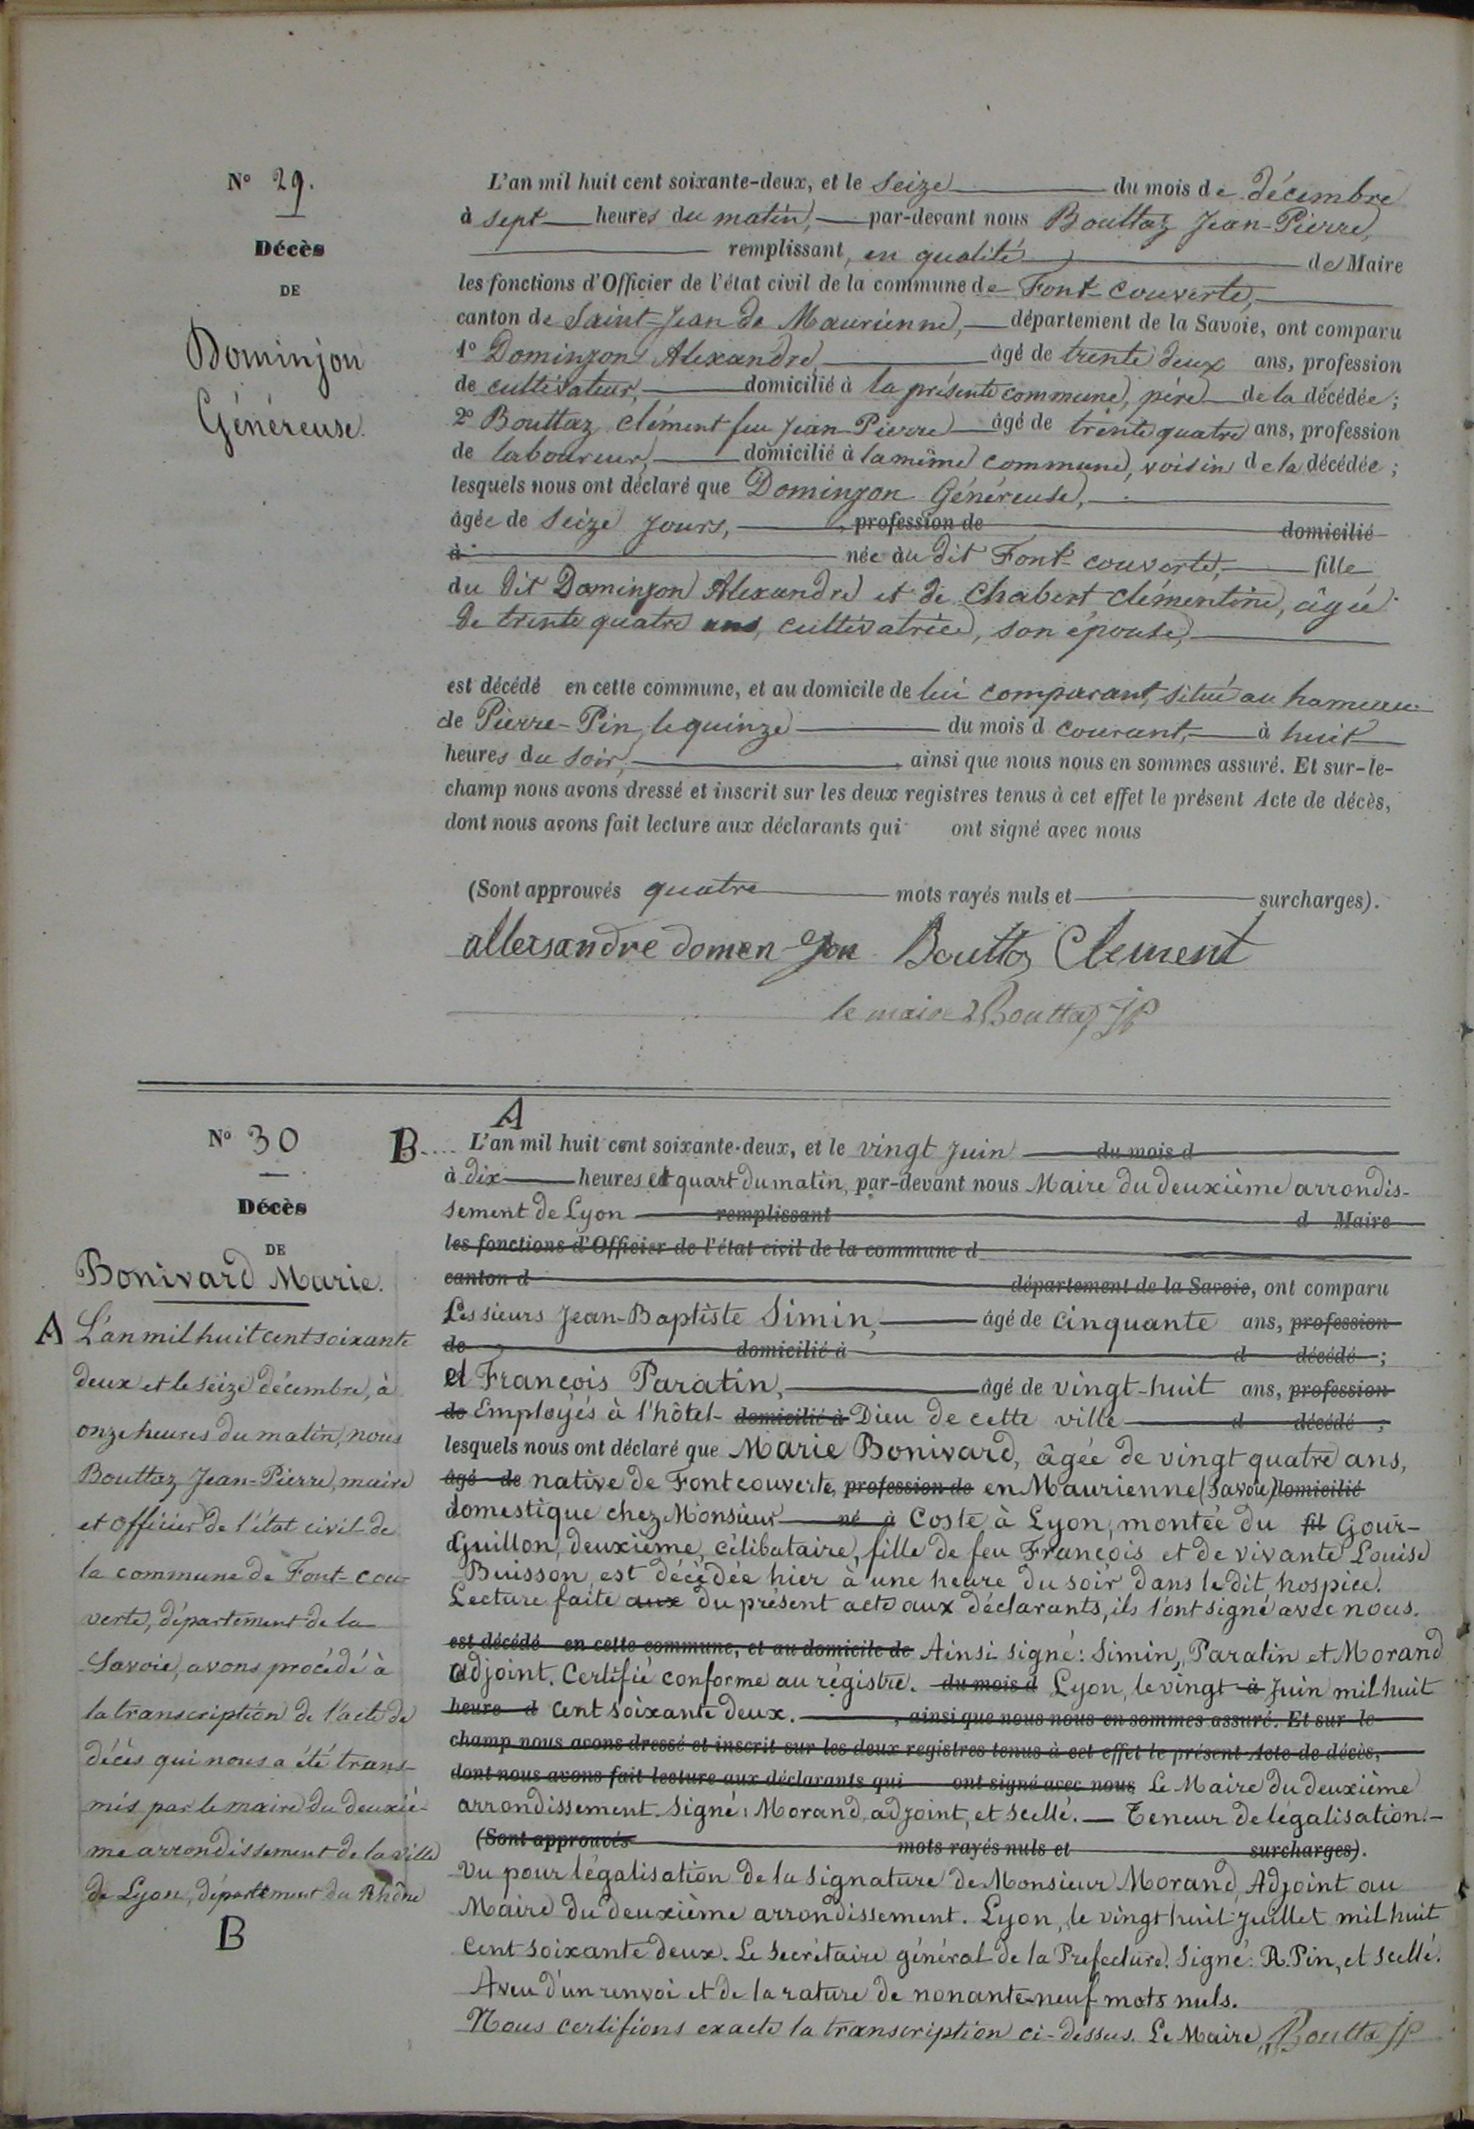 N° 29.
Décès
DE
Dominjon
Généreuse.
L'an mil huit cent soixante-deux, et le seize du mois de décembre
à sept heures du matin, par-devant nous Bouttaz Jean-Pierre,
remplissant, en qualité de Maire
les fonctions d'Officier de l'état civil de la commune de Font-couverte,
canton de Saint-Jean de Maurienne, département de la Savoie, ont comparu
1° Dominjon Alexandre âgé de trente deux ans, profession
de cultivateur, domicilié à la présente commune, père de la décédée;
2° Bouttaz Clément feu Jean-Pierre âgé de trente quatre ans, profession
de laboureur, domicilié à la même commune, voisin de la décédée;
lesquels nous ont déclaré que Dominjon Généreuse,
âgée de seize jours, profession de domicilié
à née au dit Font-couverte, fille
du dit Dominjon Alexandre et de Chabert Clémentine, âgée
de trente quatre ans, cultivatrice, son épouse,
est décédé en cette commune, et au domicile de lui comparant, situé au hameau
de Pierre-Pin, le quinze du mois d courant, à huit
heures du soir, ainsi que nous nous en sommes assuré. Et sur-le-
champ nous avons dressé et inscrit sur les deux registres tenus à cet effet le présent Acte de décès,
dont nous avons fait lecture aux déclarants qui ont signé avec nous
(Sont approuvés quatre mots rayés nuls et surcharges).
allexsandre domen jon Bouttaz Clement
le maire Bouttaz JP
N° 30
Décès
DE
Bonivard Marie.
A L'an mil huit cent soixante
deux et le seize décembre, à
onze heures du matin, nous
Bouttaz Jean-Pierre, maire
et officier de l'état civil de
la commune de Font-cou-
verte, département de la
Savoie, avons procédé à
la transcription de l'acte de
décès qui nous a été trans-
mis par le maire du deuxiè-
me arrondissement de la ville
de Lyon, département du Rhône
B
A
B.... L'an mil huit cent soixante-deux, et le vingt juin du mois d
à dix heures et quart du matin, par-devant nous Maire du deuxième arrondis-
sement de Lyon remplissant d Maire
les fonctions d'Officier de l'état civil de la commune d
canton d département de la Savoie, ont comparu
Les sieurs Jean-Baptiste Simin, âgé de cinquante ans, profession
de domicilié à d décédé ;
et François Paratin, âgé de vingt-huit ans, profession
de Employés à l'hôtel- domicilié à Dieu de cette ville d décédé ;
lesquels nous ont déclaré que Marie Bonivard, âgée de vingt quatre ans,
âgé de native de Fontcouverte, profession de en Maurienne (Savoie) domicilié
domestique chez Monsieur né à Coste à Lyon, montée du fil Gour-
Guillon, deuxième, célibataire, fille de feu François et de vivante Louise
Buisson, est décédée hier à une heure du soir dans le dit hospice.
Lecture faite aux du présent acte aux déclarants, ils l'ont signé avec nous.
est décédé en cette commune, et au domicile de Ainsi signé: Simin, Paratin et Morand
adjoint. Certifié conforme au régistre. du mois d Lyon, le vingt à Juin mil huit
heure d cent soixante deux. , ainsi que nous nous en sommes assuré. Et sur-le-
champ nous avons dressé et inscrit sur les deux registres tenus à cet effet le présent Acte de décès,
dont nous avons fait lecture aux déclarants qui ont signé avec nous Le Maire du deuxième
arrondissement. Signé: Morand, adjoint, et scellé. — Teneur de légalisation.—
(Sont approuvés mots rayés nuls et surcharges).
Vu pour légalisation de la signature de Monsieur Morand, Adjoint au
Maire du deuxième arrondissement. Lyon, le vingt huit juillet mil huit
cent soixante deux. Le secrétaire général de la Prefecture. Signé: R. Pin, et scellé.
Aveu d'un renvoi et de la rature de nonante-neuf mots nuls.
Nous certifions exacte la transcription ci-dessus. Le Maire, Boutta JP